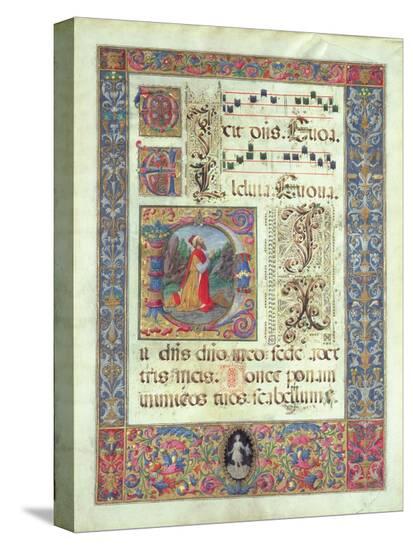 cit dñs. Euoa.
leluia. Euoua.
D IX
it dñs dño meo: sede a dex
tris meis. Donec ponam
inimicos tuos scabellum